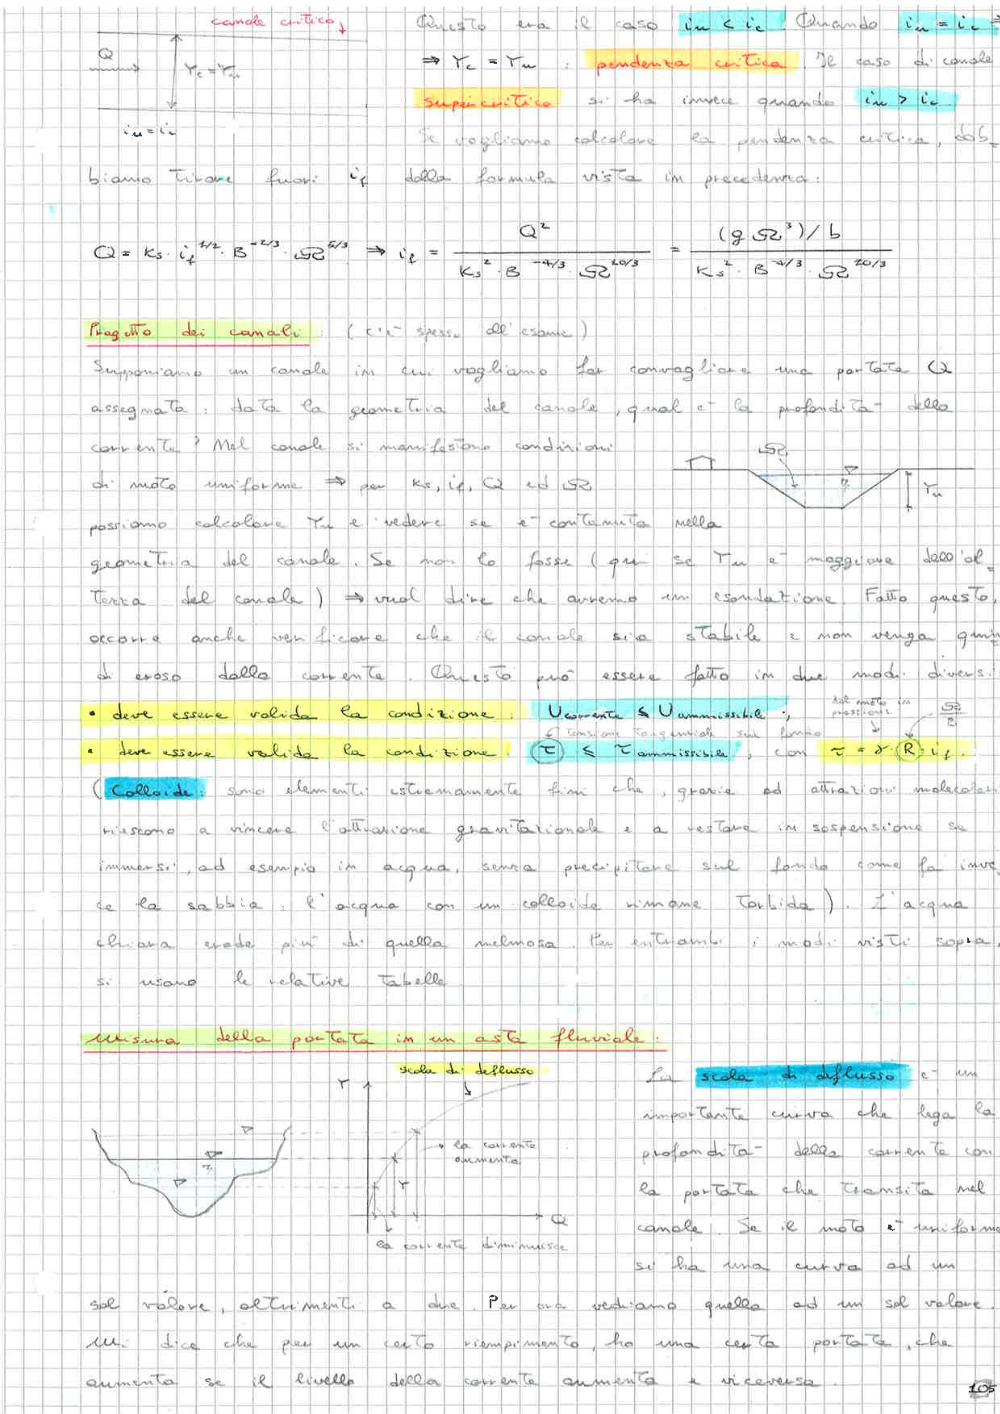 canale critico
Q
Yc = Yu
iu = ic
Questo era il caso iu < ic. Quando iu = ic =
⇒ Yc = Yu : pendenza critica. Il caso di canale
supercritico si ha invece quando iu > ic
Se vogliamo calcolare la pendenza critica, dob_
biamo tirare fuori if dalla formula vista in precedenza:
Q = Ks · if^1/2 · B^-2/3 · Ω^5/3 ⇒ if = Q² / (Ks² · B^-4/3 · Ω^10/3) = (g Ω³)/b / (Ks² · B^-4/3 · Ω^10/3)
Progetto dei canali: (c'è spesso all'esame)
Supponiamo un canale in cui vogliamo far convogliare una portata Q
assegnata: data la geometria del canale, qual è la profondità della
corrente? Nel canale si manifestano condizioni
di moto uniforme ⇒ per Ks, if, Q ed Ω
Ω
Yu
possiamo calcolare Yu e vedere se è contenuta nella
geometria del canale. Se non lo fosse (qui se Yu è maggiore dell'al_
tezza del canale) ⇒ vuol dire che avremo un esondazione. Fatto questo,
occorre anche verificare che il canale sia stabile e non venga quin
di eroso dalla corrente. Questo può essere fatto in due modi diversi
• deve essere valida la condizione: Ucorrente ≤ Uammissibile ;
dal moto in pressione
Ω/B
tensione tangenziale sul fondo
• deve essere valida la condizione: τ ≤ τammissibile, con τ = γ · R · if.
(Colloide: sono elementi estremamente fini che, grazie ad attrazioni molecolari
riescono a vincere l'attrazione gravitazionale e a restare in sospensione se
immersi, ad esempio in acqua, senza precipitare sul fondo come fa inve
ce la sabbia: l'acqua con un colloide rimane torbida). L'acqua
chiara erode più di quella melmosa. Per entrambi i modi visti sopra,
si usano le relative tabelle
Misura della portata in un asta fluviale:
Y
scala di deflusso
la corrente aumenta
Y
Q
la corrente diminuisce
La scala di deflusso è un
importante curva che lega la
profondità della corrente con
la portata che transita nel
canale. Se il moto è uniforme
si ha una curva ad un
sol valore, altrimenti a due. Per ora vediamo quella ad un sol valore.
Mi dice che per un certo riempimento, ho una certa portata, che
aumenta se il livello della corrente aumenta e viceversa.
105